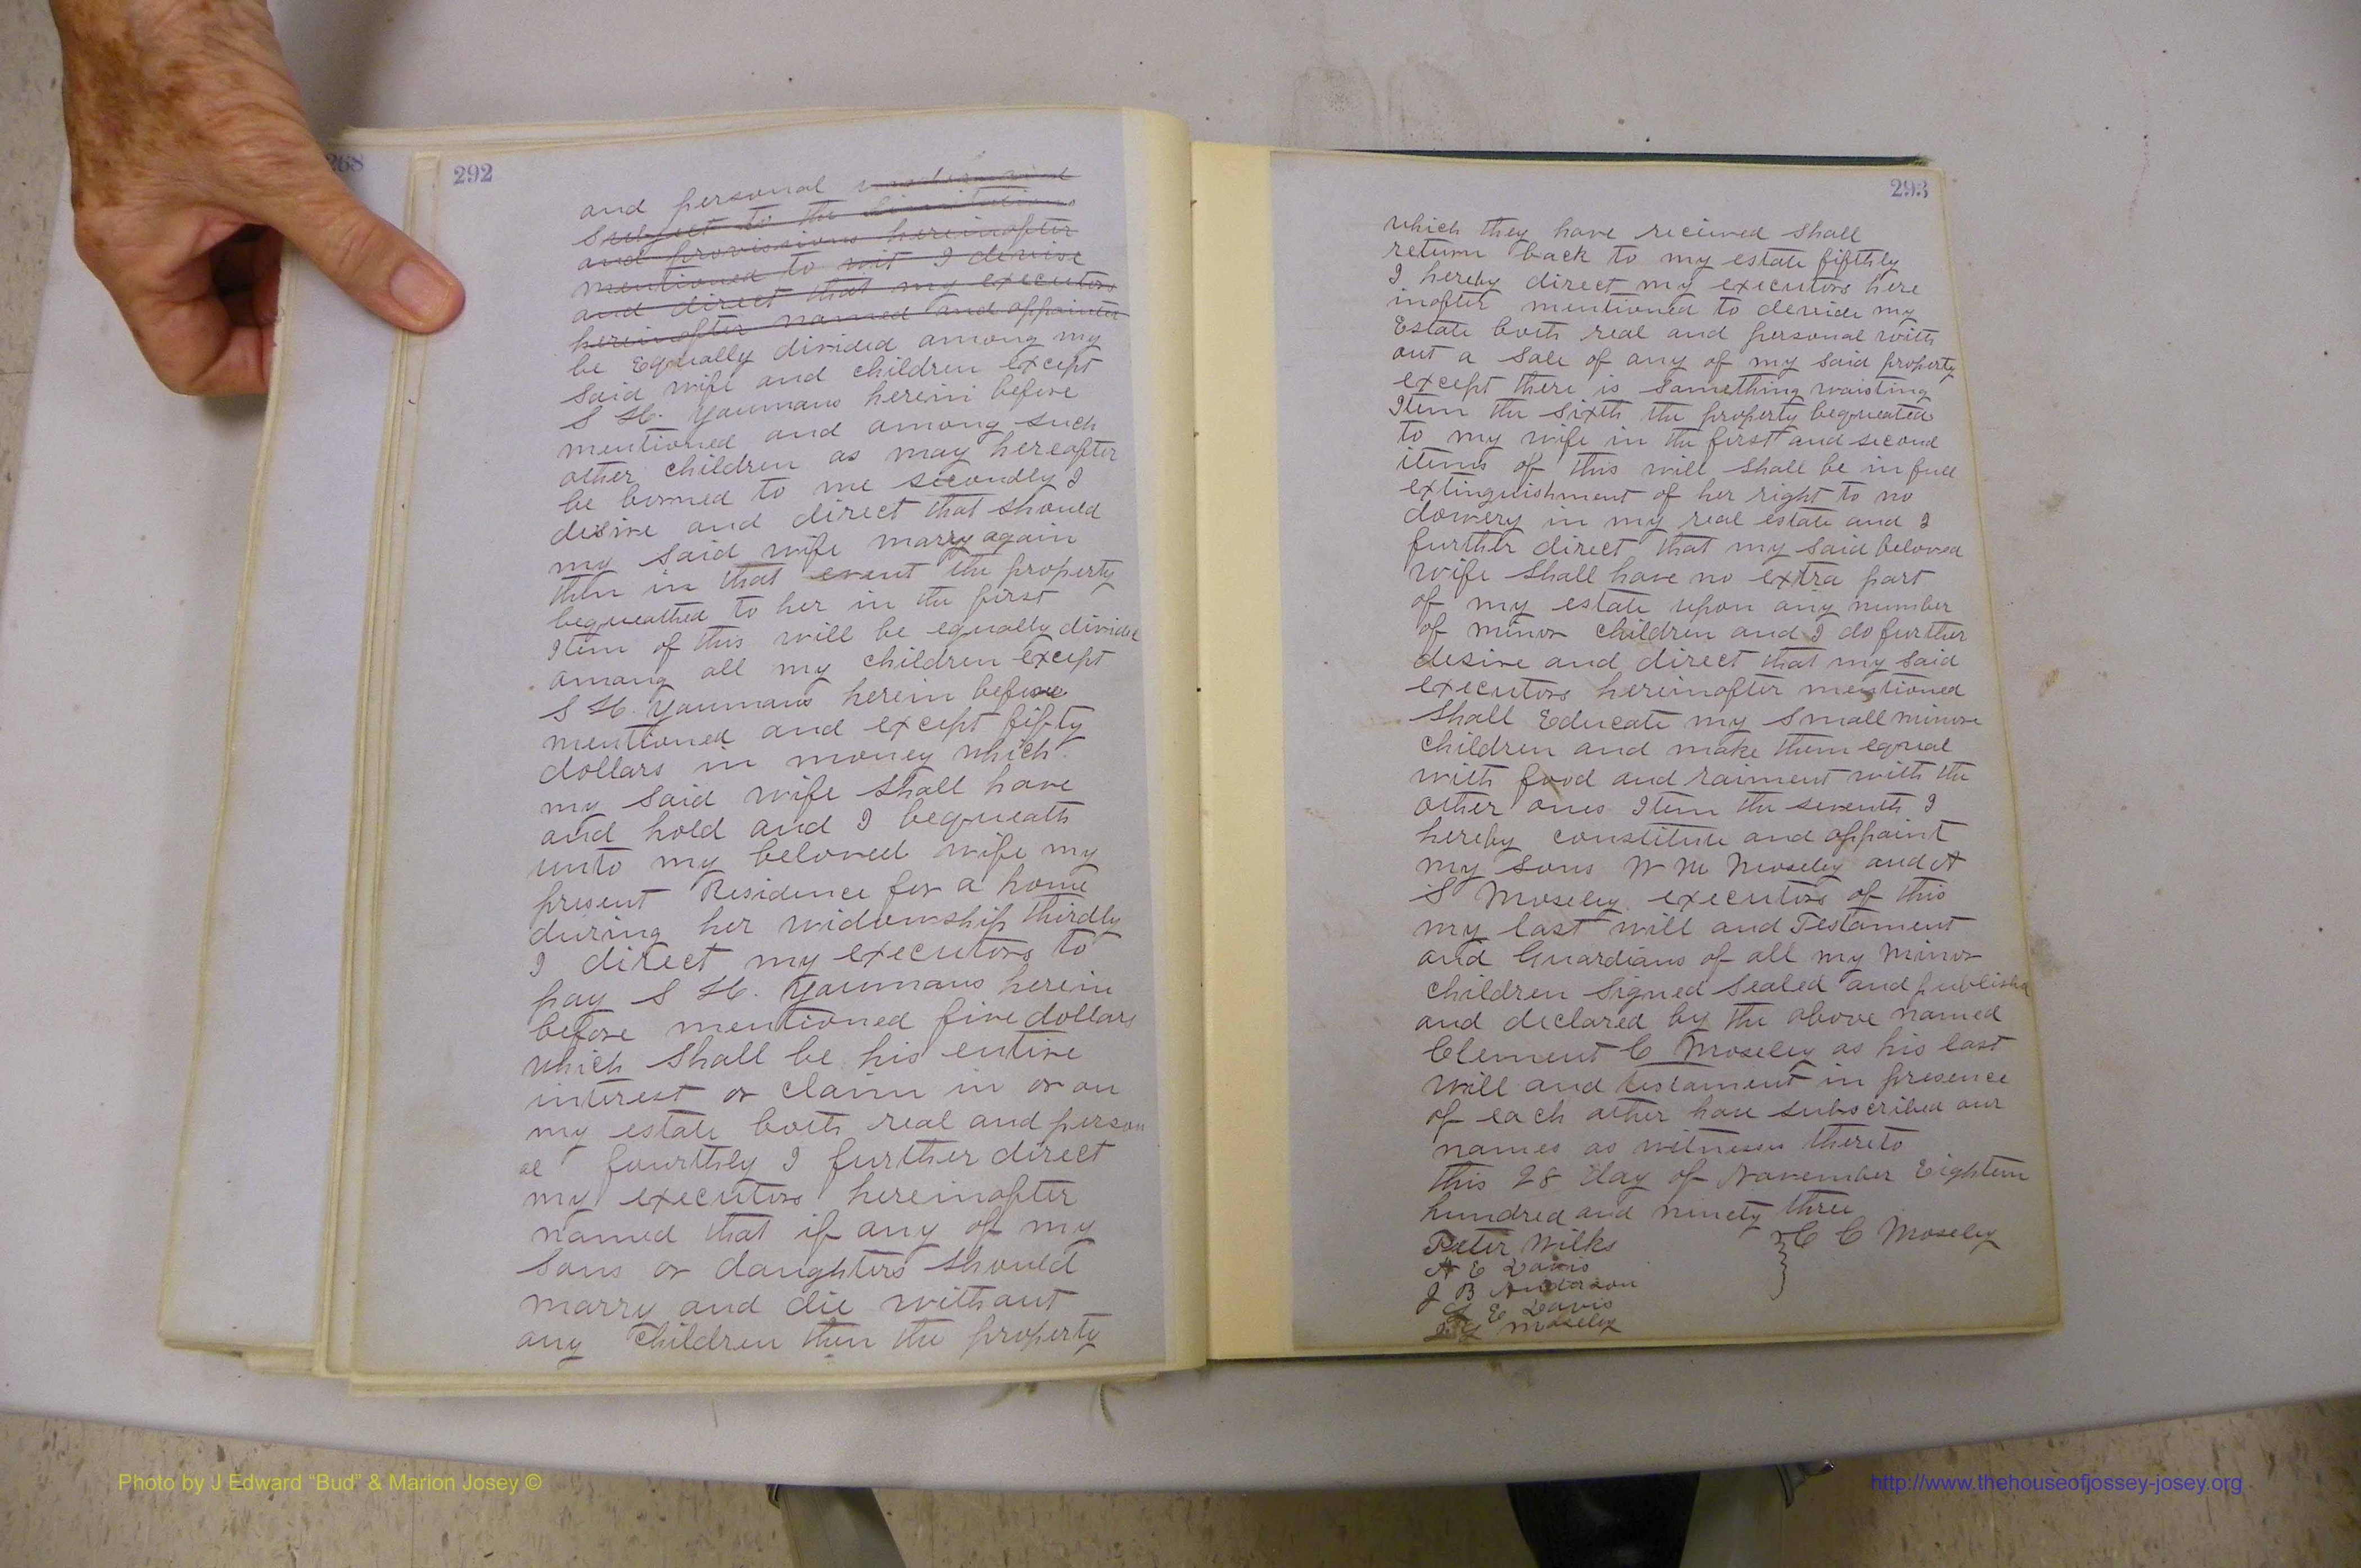 268
292
and personal
subject to the limitations
and provissions hereinafter
mentioned to wit I devise
and direct that my executors
hereinafter named and appointed
be Equally divided among my
said wife and children except
S H. Youmans herein before
mentioned and among such
other children as may hereafter
be borned to me secondly I
desire and direct that should
my said wife marry again
then in that event the property
bequeathed to her in the first
Item of this will be equally divided
among all my children except
S H. Youmans herein before
mentioned and except fifty
dollars in money which
my said wife shall have
and hold and I bequeath
unto my beloved wife my
present Residence for a home
during her widowship thirdly
I direct my executors to
pay S H. Youmans herein
before mentioned five dollars
which shall be his entire
interest or claim in or on
my estate both real and person
al fourthly I further direct
my executors hereinafter
named that if any of my
Sons or daughters should
marry and die without
any children then the property
293
which they have recieved shall
return back to my estate fifthly
I hereby direct my executors here
inafter mentioned to devide my
Estate both real and personal with
out a sale of any of my said property
except there is something waisting
Item the sixth the property bequeated
to my wife in the first and second
items of this will shall be in full
extinguishment of her right to no
dowery in my real estate and I
further direct that my said beloved
wife shall have no extra part
of my estate upon any number
of minor children and I do further
desire and direct that my said
executors hereinafter mentioned
shall Educate my small minor
children and make them equal
with food and raiment with the
other ones Item the seventh I
hereby constitute and appoint
my sons W M Moseley and A
S Moseley executors of this
my last will and Testament
and Guardians of all my Minor
children Signed Sealed and published
and declared by the above named
Clement C Moseley as his last
will and testament in presence
of each other have subscribed our
names as witnesses thereto
this 28 day of November Eighteen
hundred and ninety three
Peter Wilks } C C Moseley
A E Davis
J B Anderson
E Davis
Moseley
Photo by J Edward “Bud” & Marion Josey ©
http://www.thehouseofjossey-josey.org